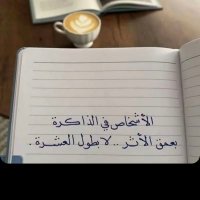 الأشخاص في الذاكرة
بعمق الأثر .. لا بطول العشرة .